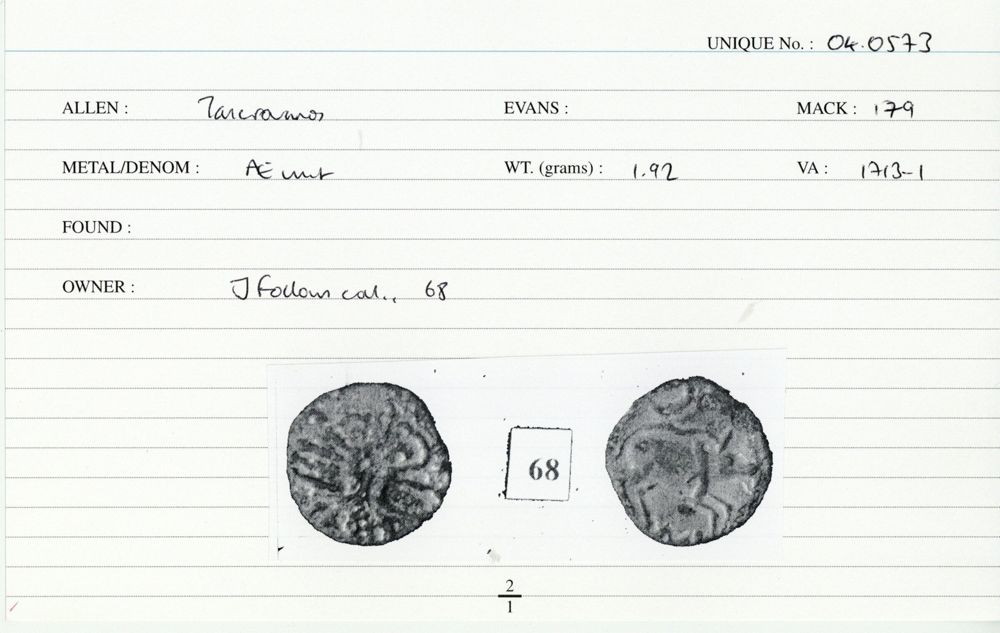 UNIQUE No. : 04.0573
ALLEN : EVANS : MACK : 179
METAL/DENOM : Æ unit WT. (grams) : 1.92 VA : 1713-1
FOUND :
OWNER : J Follows cat., 68
68
2
1